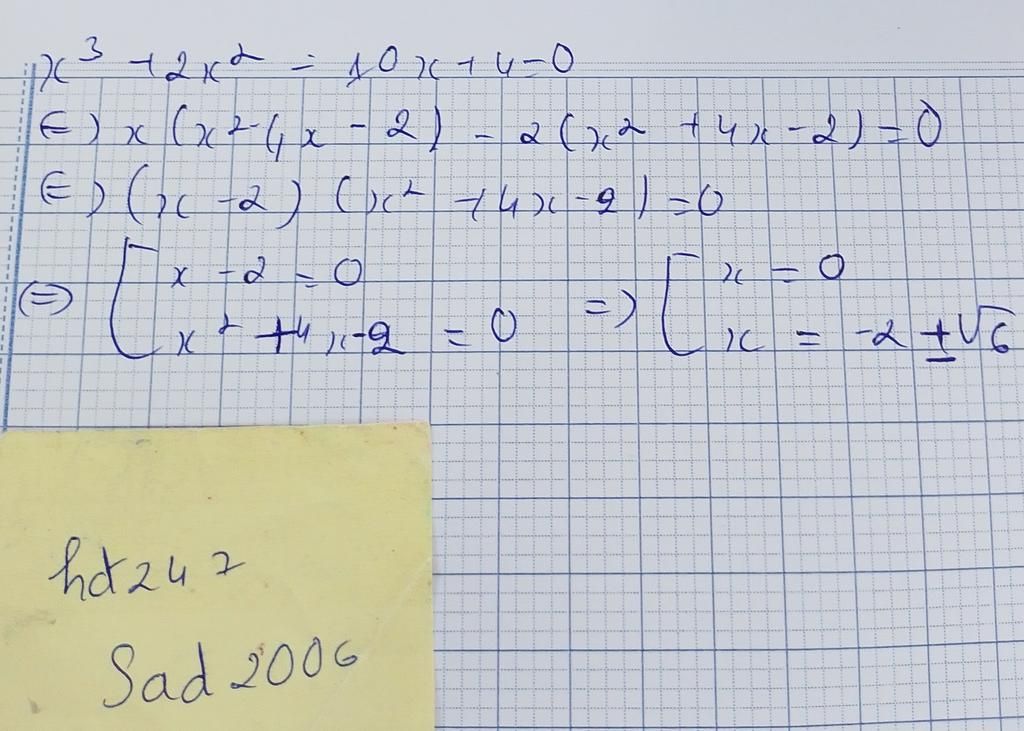 x³ + 2x² - 10x + 4 = 0
⇔ x(x² - 4x - 2) - 2(x² + 4x - 2) = 0
⇔ (x - 2) (x² + 4x - 2) = 0
⇔ [ x - 2 = 0 ⇒ [ x = 0
x² + 4x - 2 = 0 x = -2 ± √6
hdt247
Sad 2006